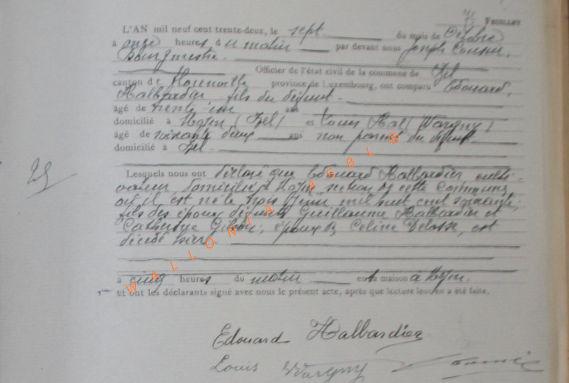 FEUILLET
L'AN mil neuf cent trente-deux, le sept du mois de Octobre
à onze heures du matin par devant nous Joseph
Bourgmestre
Officier de l'état civil de la commune de
canton de Florenville province de Luxembourg, ont comparu Edouard
Halbardier fils du défunt
âgé de trente ans
domicilié à et Louis (Wargny)
âgé de soixante deux ans non parent du défunt
domicilié à
25
Lesquels nous ont déclaré que Edouard Halbardier, culti-
vateur domicilié à section de cette commune
où il est né le trois mil huit cent soixante
fils des époux défunts Guillaume Halbardier et
Catherine époux de Céline est
décédé hier
à cinq heures du matin en sa maison à
Et ont les déclarants signé avec nous le présent acte, après que lecture leur en a été faite.
WALLONIE
Edouard Halbardier
Louis Wargny